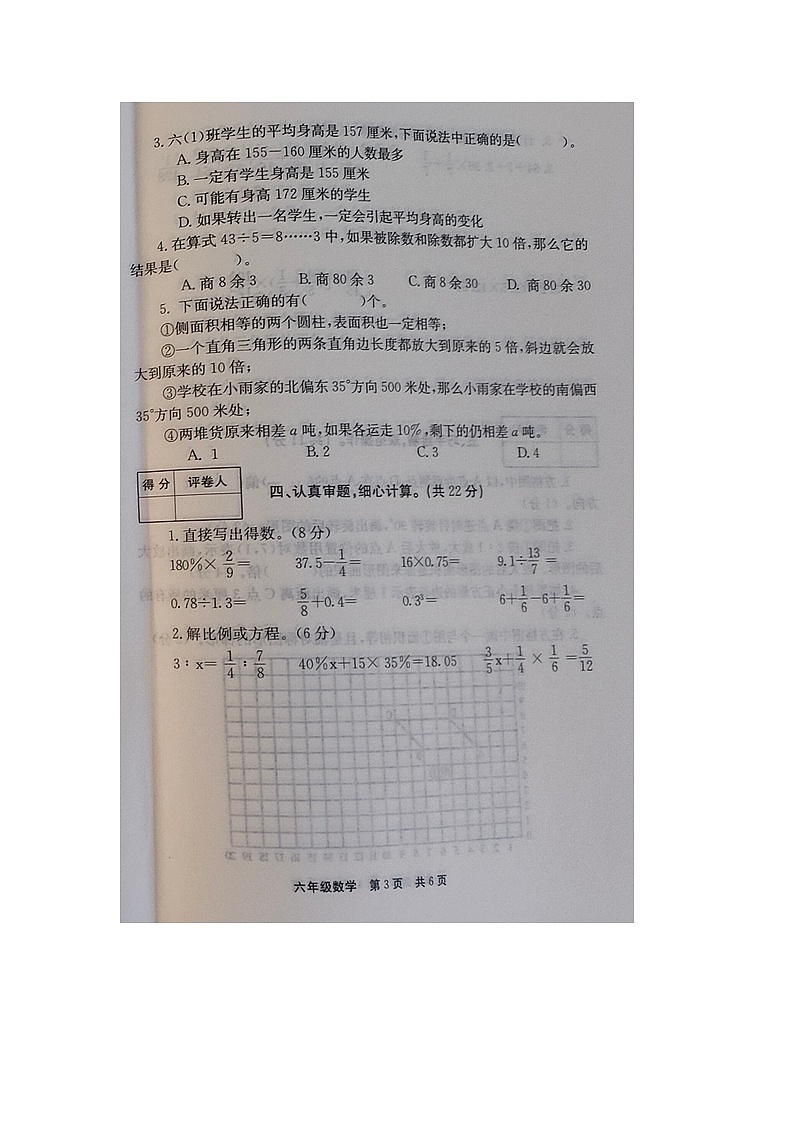 3.六(1)班学生的平均身高是157厘米,下面说法中正确的是(  )。
A.身高在155-160厘米的人数最多
B.一定有学生身高是155厘米
C.可能有身高172厘米的学生
D.如果转出一名学生,一定会引起平均身高的变化
4.在算式43÷5=8……3中,如果被除数和除数都扩大10倍,那么它的
结果是(  )。
A.商8余3 B.商80余3 C.商8余30 D.商80余30
5.下面说法正确的有(  )个。
①侧面积相等的两个圆柱,表面积也一定相等;
②一个直角三角形的两条直角边长度都放大到原来的5倍,斜边就会放
大到原来的10倍;
③学校在小雨家的北偏东35°方向500米处,那么小雨家在学校的南偏西
35°方向500米处;
④两堆货原来相差a吨,如果各运走10%,剩下的仍相差a吨。
A. 1 B. 2 C. 3 D. 4
得分 评卷人
四、认真审题,细心计算。(共22分)
1.直接写出得数。(8分)
180%×2/9= 37.5-1/4= 16×0.75= 9.1÷13/7=
0.78÷1.3= 5/8+0.4= 0.3³= 6+1/6-6+1/6=
2.解比例或方程。(6分)
3∶x=1/4∶7/8 40%x+15×35%=18.05 3/5x+1/4×1/6=5/12
六年级数学 第3页 共6页